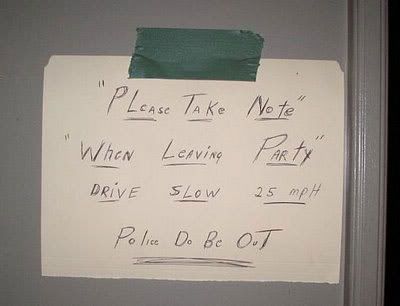 "PLease Take Note"
"When Leaving Party"
DRIVE SLOW 25 mpH
Police Do Be OuT